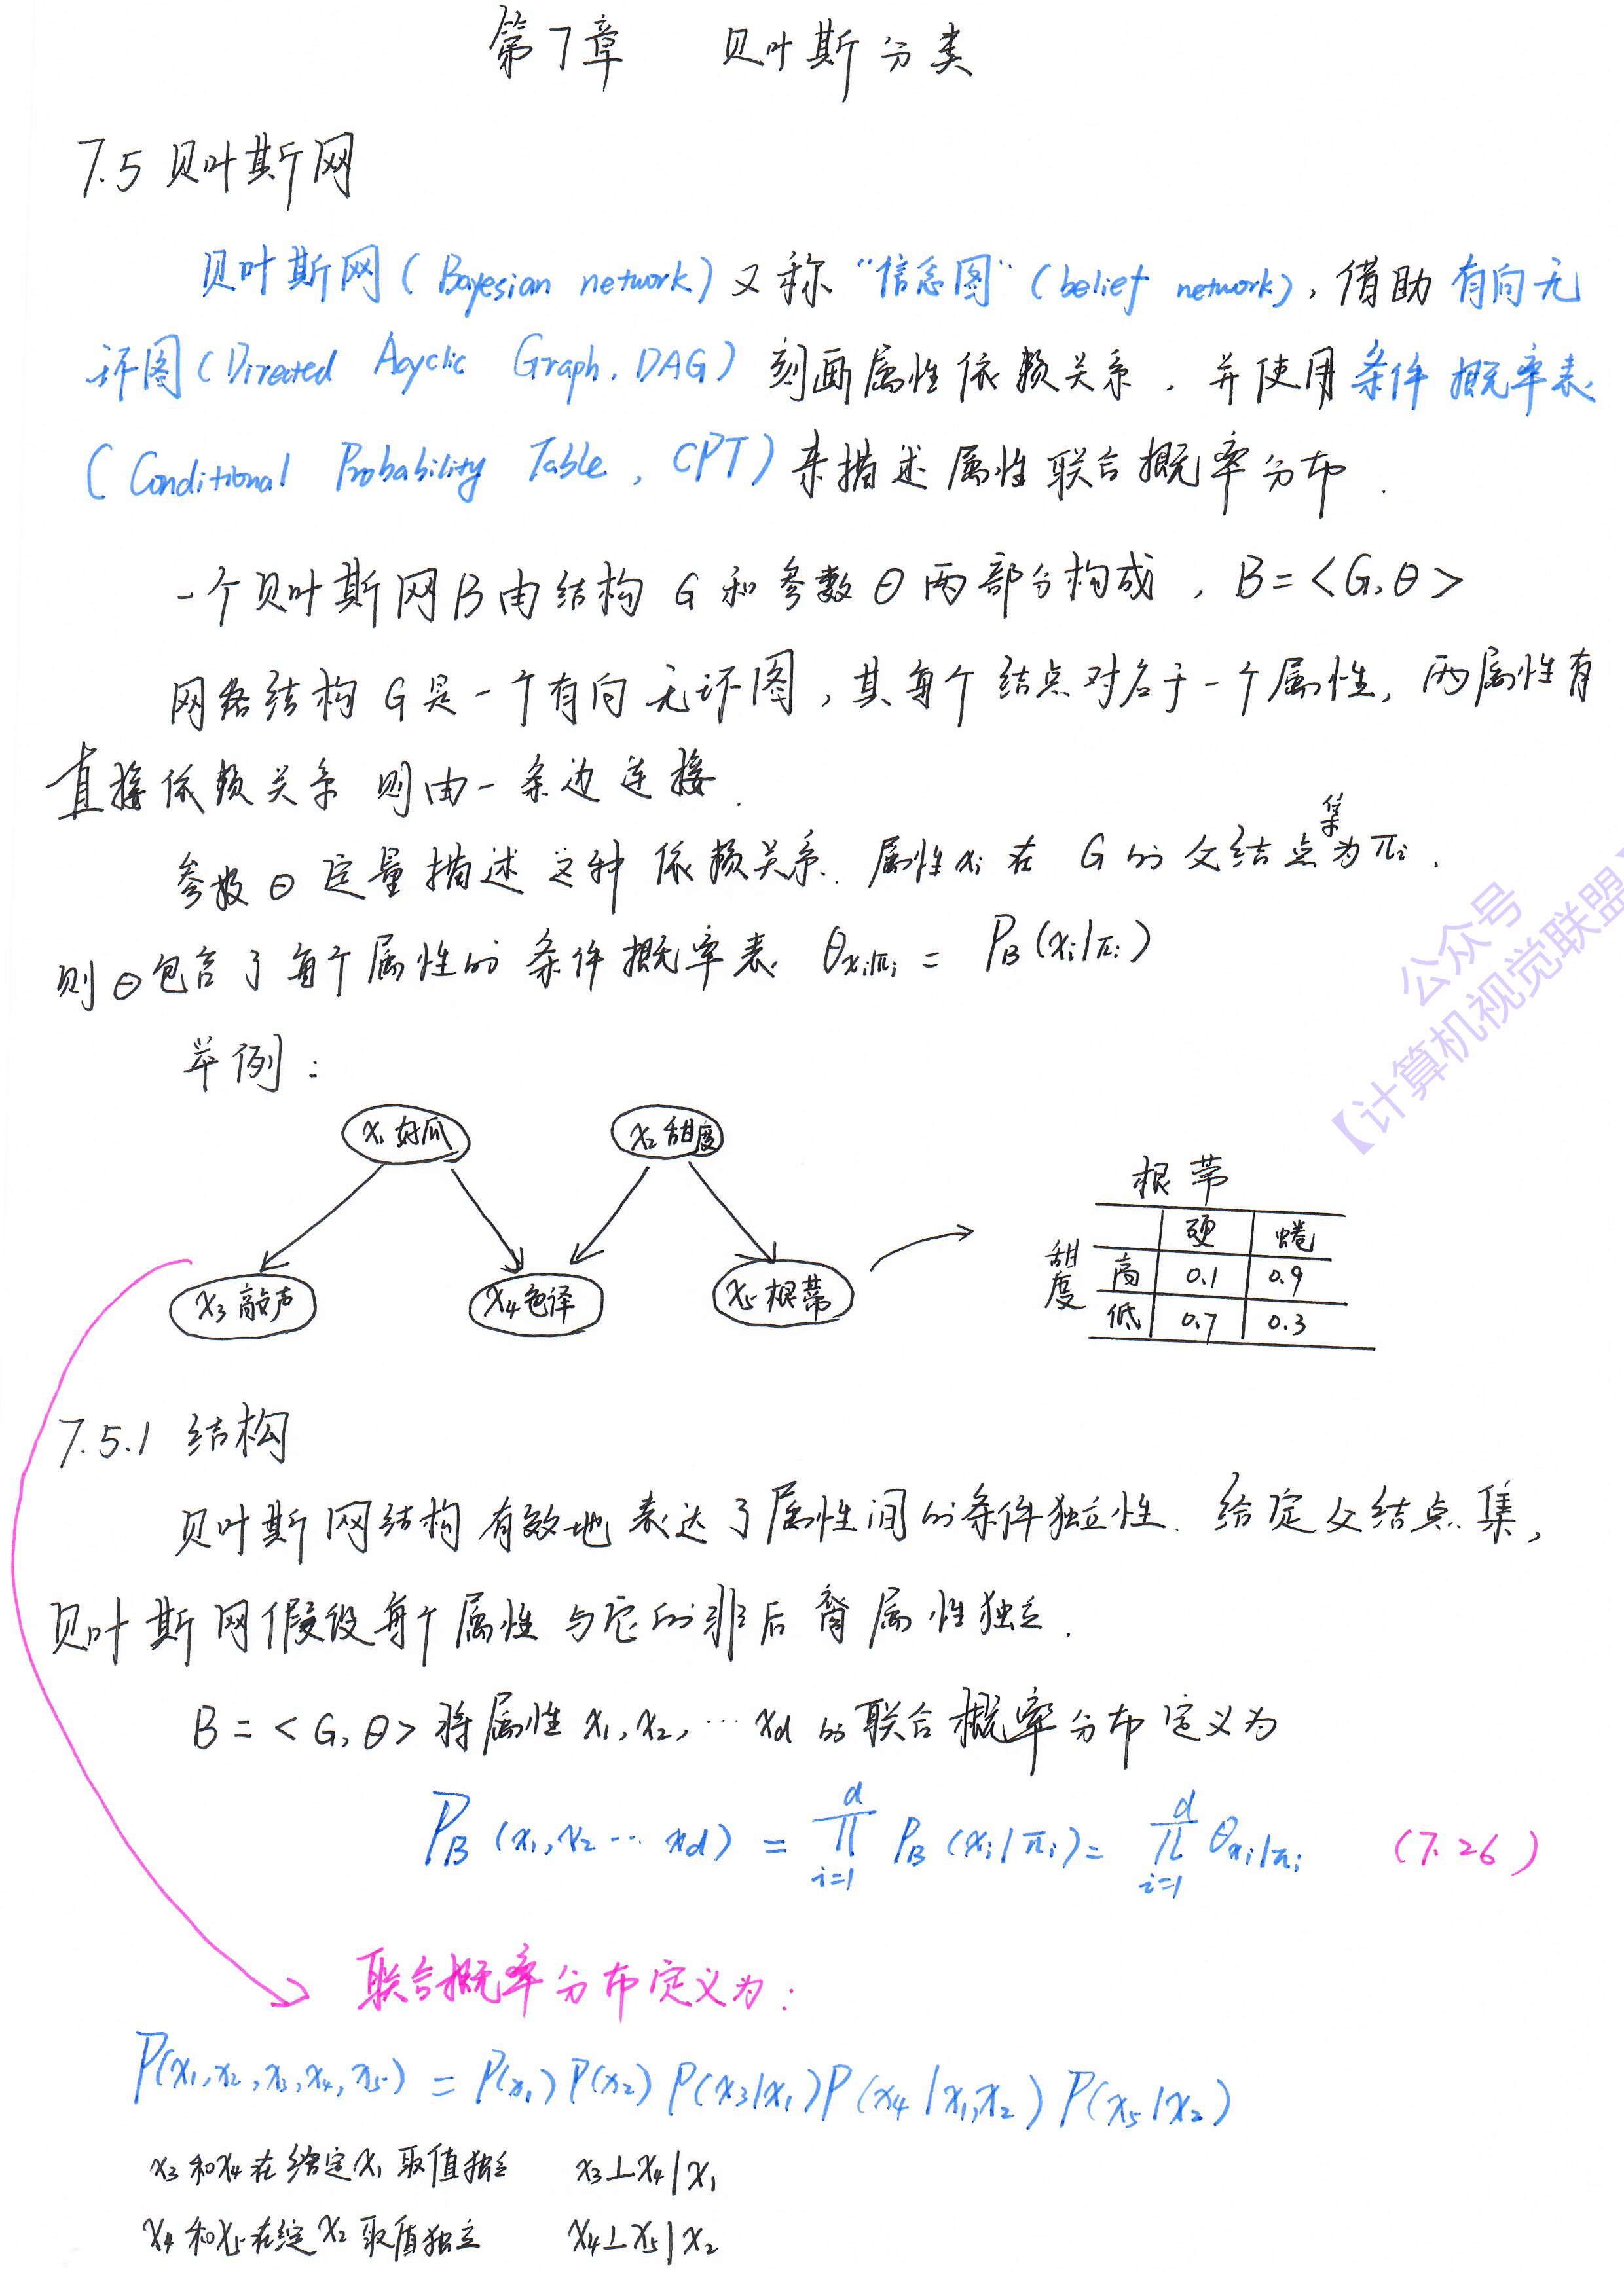 第7章 贝叶斯分类
7.5 贝叶斯网
贝叶斯网(Bayesian network)又称"信念图"(belief network),借助有向无
环图(Directed Acyclic Graph, DAG)刻画属性依赖关系,并使用条件概率表
(Conditional Probability Table, CPT)来描述属性联合概率分布.
一个贝叶斯网B由结构G和参数θ两部分构成,B=<G,θ>
网络结构G是一个有向无环图,其每个结点对应于一个属性,两属性有
直接依赖关系则由一条边连接.
集
参数θ定量描述这种依赖关系.属性xi在G的父结点为πi.
则θ包含了每个属性的条件概率表 θxi|πi = PB(xi|πi)
公众号
【计算机视觉联盟】
举例:
x1好瓜 x2甜度
根蒂
硬 蜷
甜度 高 0.1 0.9
低 0.7 0.3
x3敲声 x4色泽 x5根蒂
7.5.1 结构
贝叶斯网结构有效地表达了属性间的条件独立性.给定父结点集,
贝叶斯网假设每个属性与它的非后裔属性独立.
B=<G,θ>将属性x1,x2,…xd的联合概率分布定义为
PB(x1,x2…xd) = ∏_{i=1}^{d} PB(xi|πi) = ∏_{i=1}^{d} θxi|πi (7.26)
联合概率分布定义为:
P(x1,x2,x3,x4,x5) = P(x1)P(x2)P(x3|x1)P(x4|x1,x2)P(x5|x2)
x3和x4在给定x1取值独立 x3⊥x4|x1
x4和x5在给定x2取值独立 x4⊥x5|x2